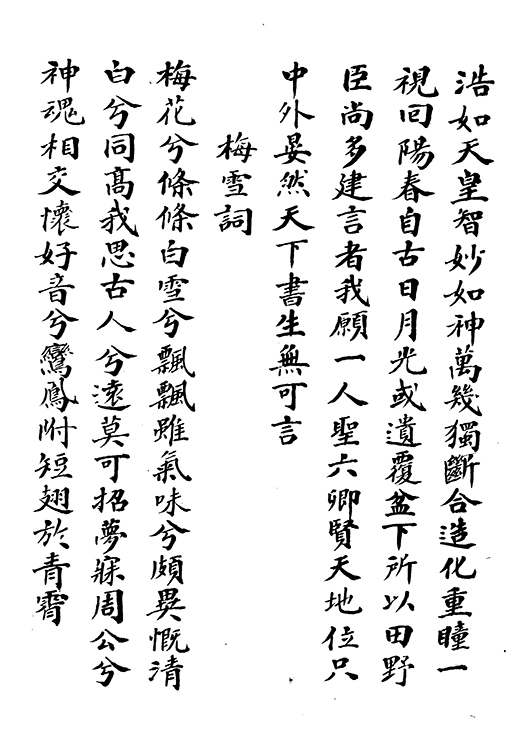 浩如天皇智妙如神萬幾獨斷合造化重瞳一
視回陽春自古日月光或遺覆盆下所以田野
臣尚多建言者我願一人聖六卿賢天地位只
中外晏然天下書生無可言
梅雪詞
梅花兮條條白雪兮飄飄雖氣味兮頗異慨清
白兮同髙我思古人兮遠莫可招夢寐周公兮
神魂相交懷好音兮鸞鳳附短翅於青霄